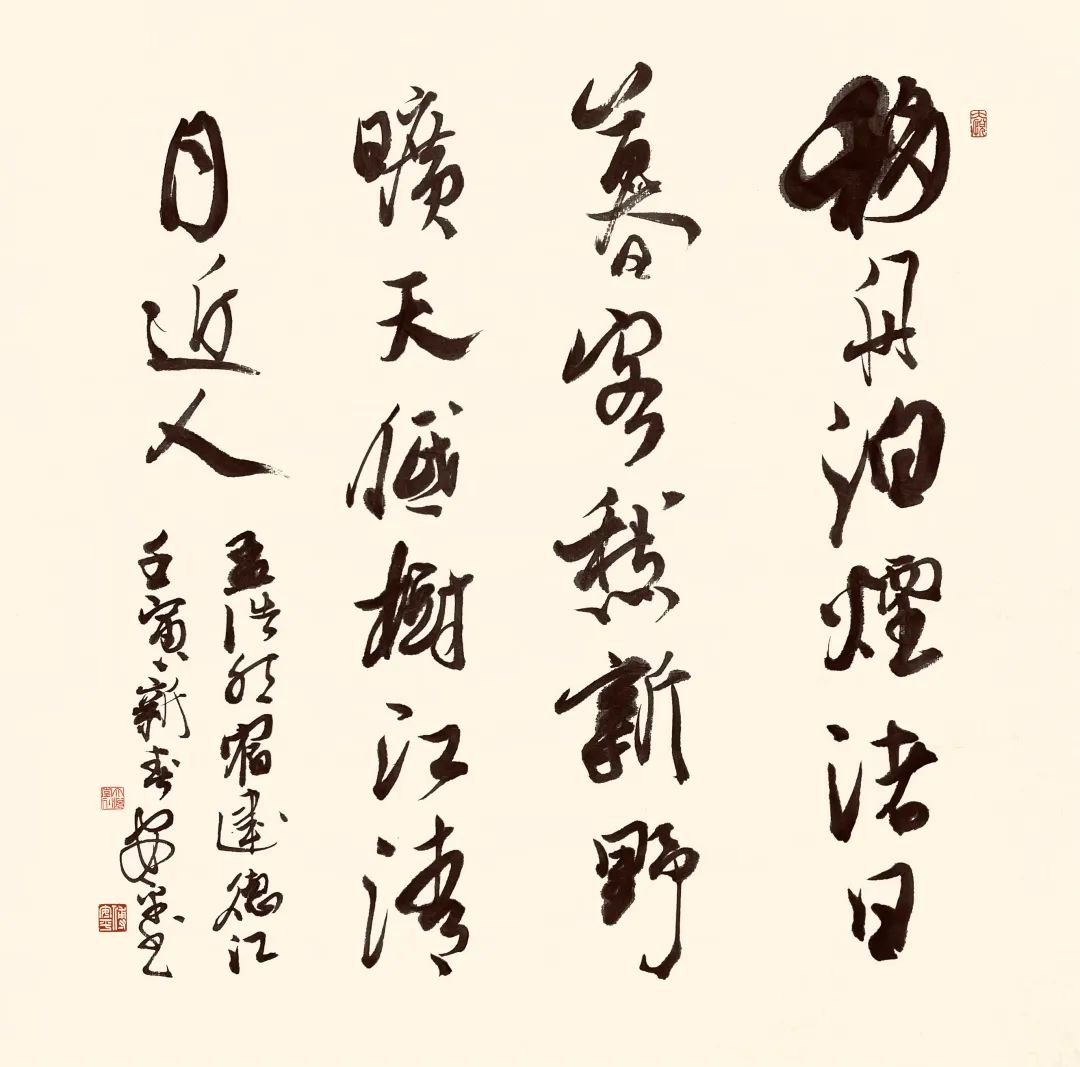 移舟泊煙渚日
暮客愁新野
曠天低樹江清
月近人
孟浩然宿建德江
壬寅新春安平书